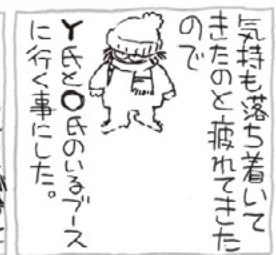 気持も落ち着いて
きたのと疲れてきた
ので
Y氏とO氏のいるブース
に行く事にした。